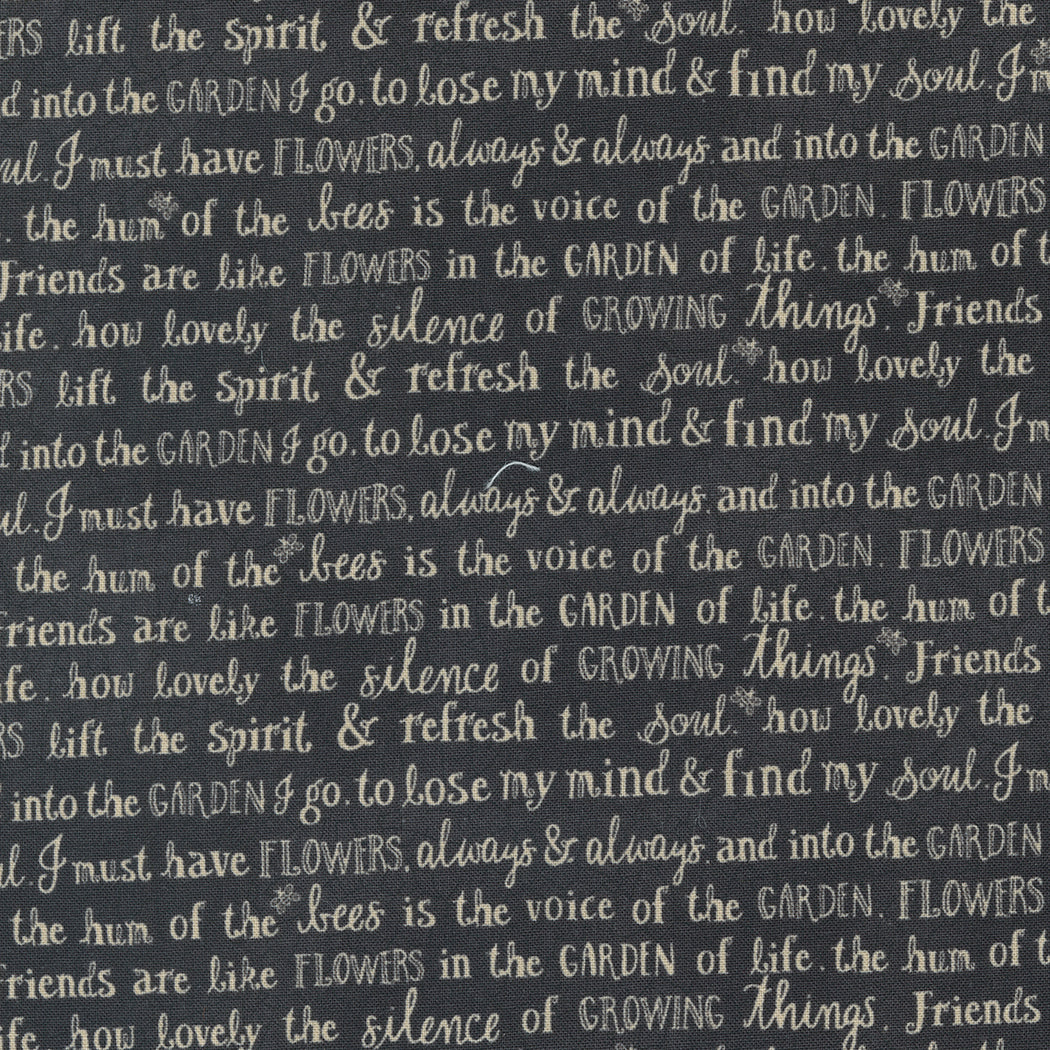 ERS lift the spirit & refresh the soul. how lovely the
d into the GARDEN I go. to lose my mind & find my soul. I m
ul. I must have FLOWERS, always & always. and into the GARDEN
. the hum of the bees is the voice of the GARDEN. FLOWERS
Friends are like FLOWERS in the GARDEN of life. the hum of t
ife. how lovely the silence of GROWING things. Friends
RS lift the spirit & refresh the soul. how lovely the
d into the GARDEN I go. to lose my mind & find my soul. I m
ul. I must have FLOWERS, always & always. and into the GARDEN
the hum of the bees is the voice of the GARDEN. FLOWERS
Friends are like FLOWERS in the GARDEN of life. the hum of t
ife. how lovely the silence of GROWING things. Friends
RS lift the spirit & refresh the soul. how lovely the
into the GARDEN I go. to lose my mind & find my soul. I m
ul. I must have FLOWERS, always & always. and into the GARDEN
the hum of the bees is the voice of the GARDEN. FLOWERS
Friends are like FLOWERS in the GARDEN of life. the hum of t
ife. how lovely the silence of GROWING things. Friends